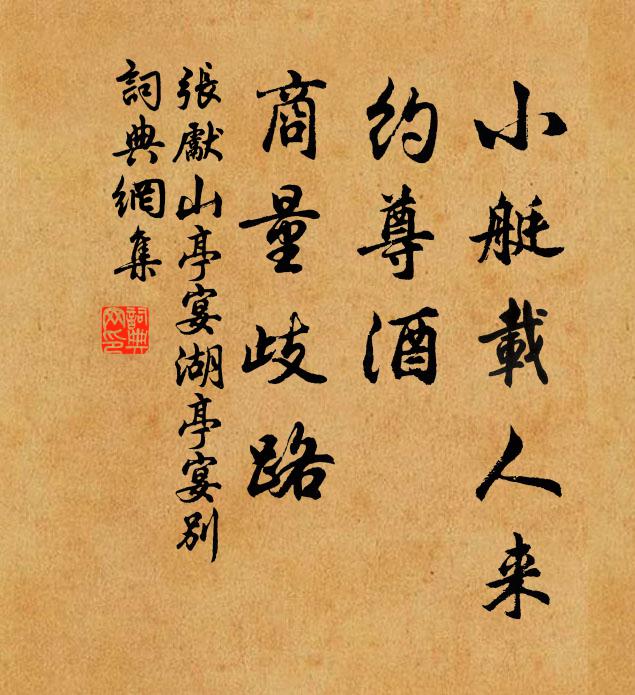 小艇載人来
約尊酒
商量歧路
張獻山亭宴湖亭宴别
詞典網集
詞典
网印